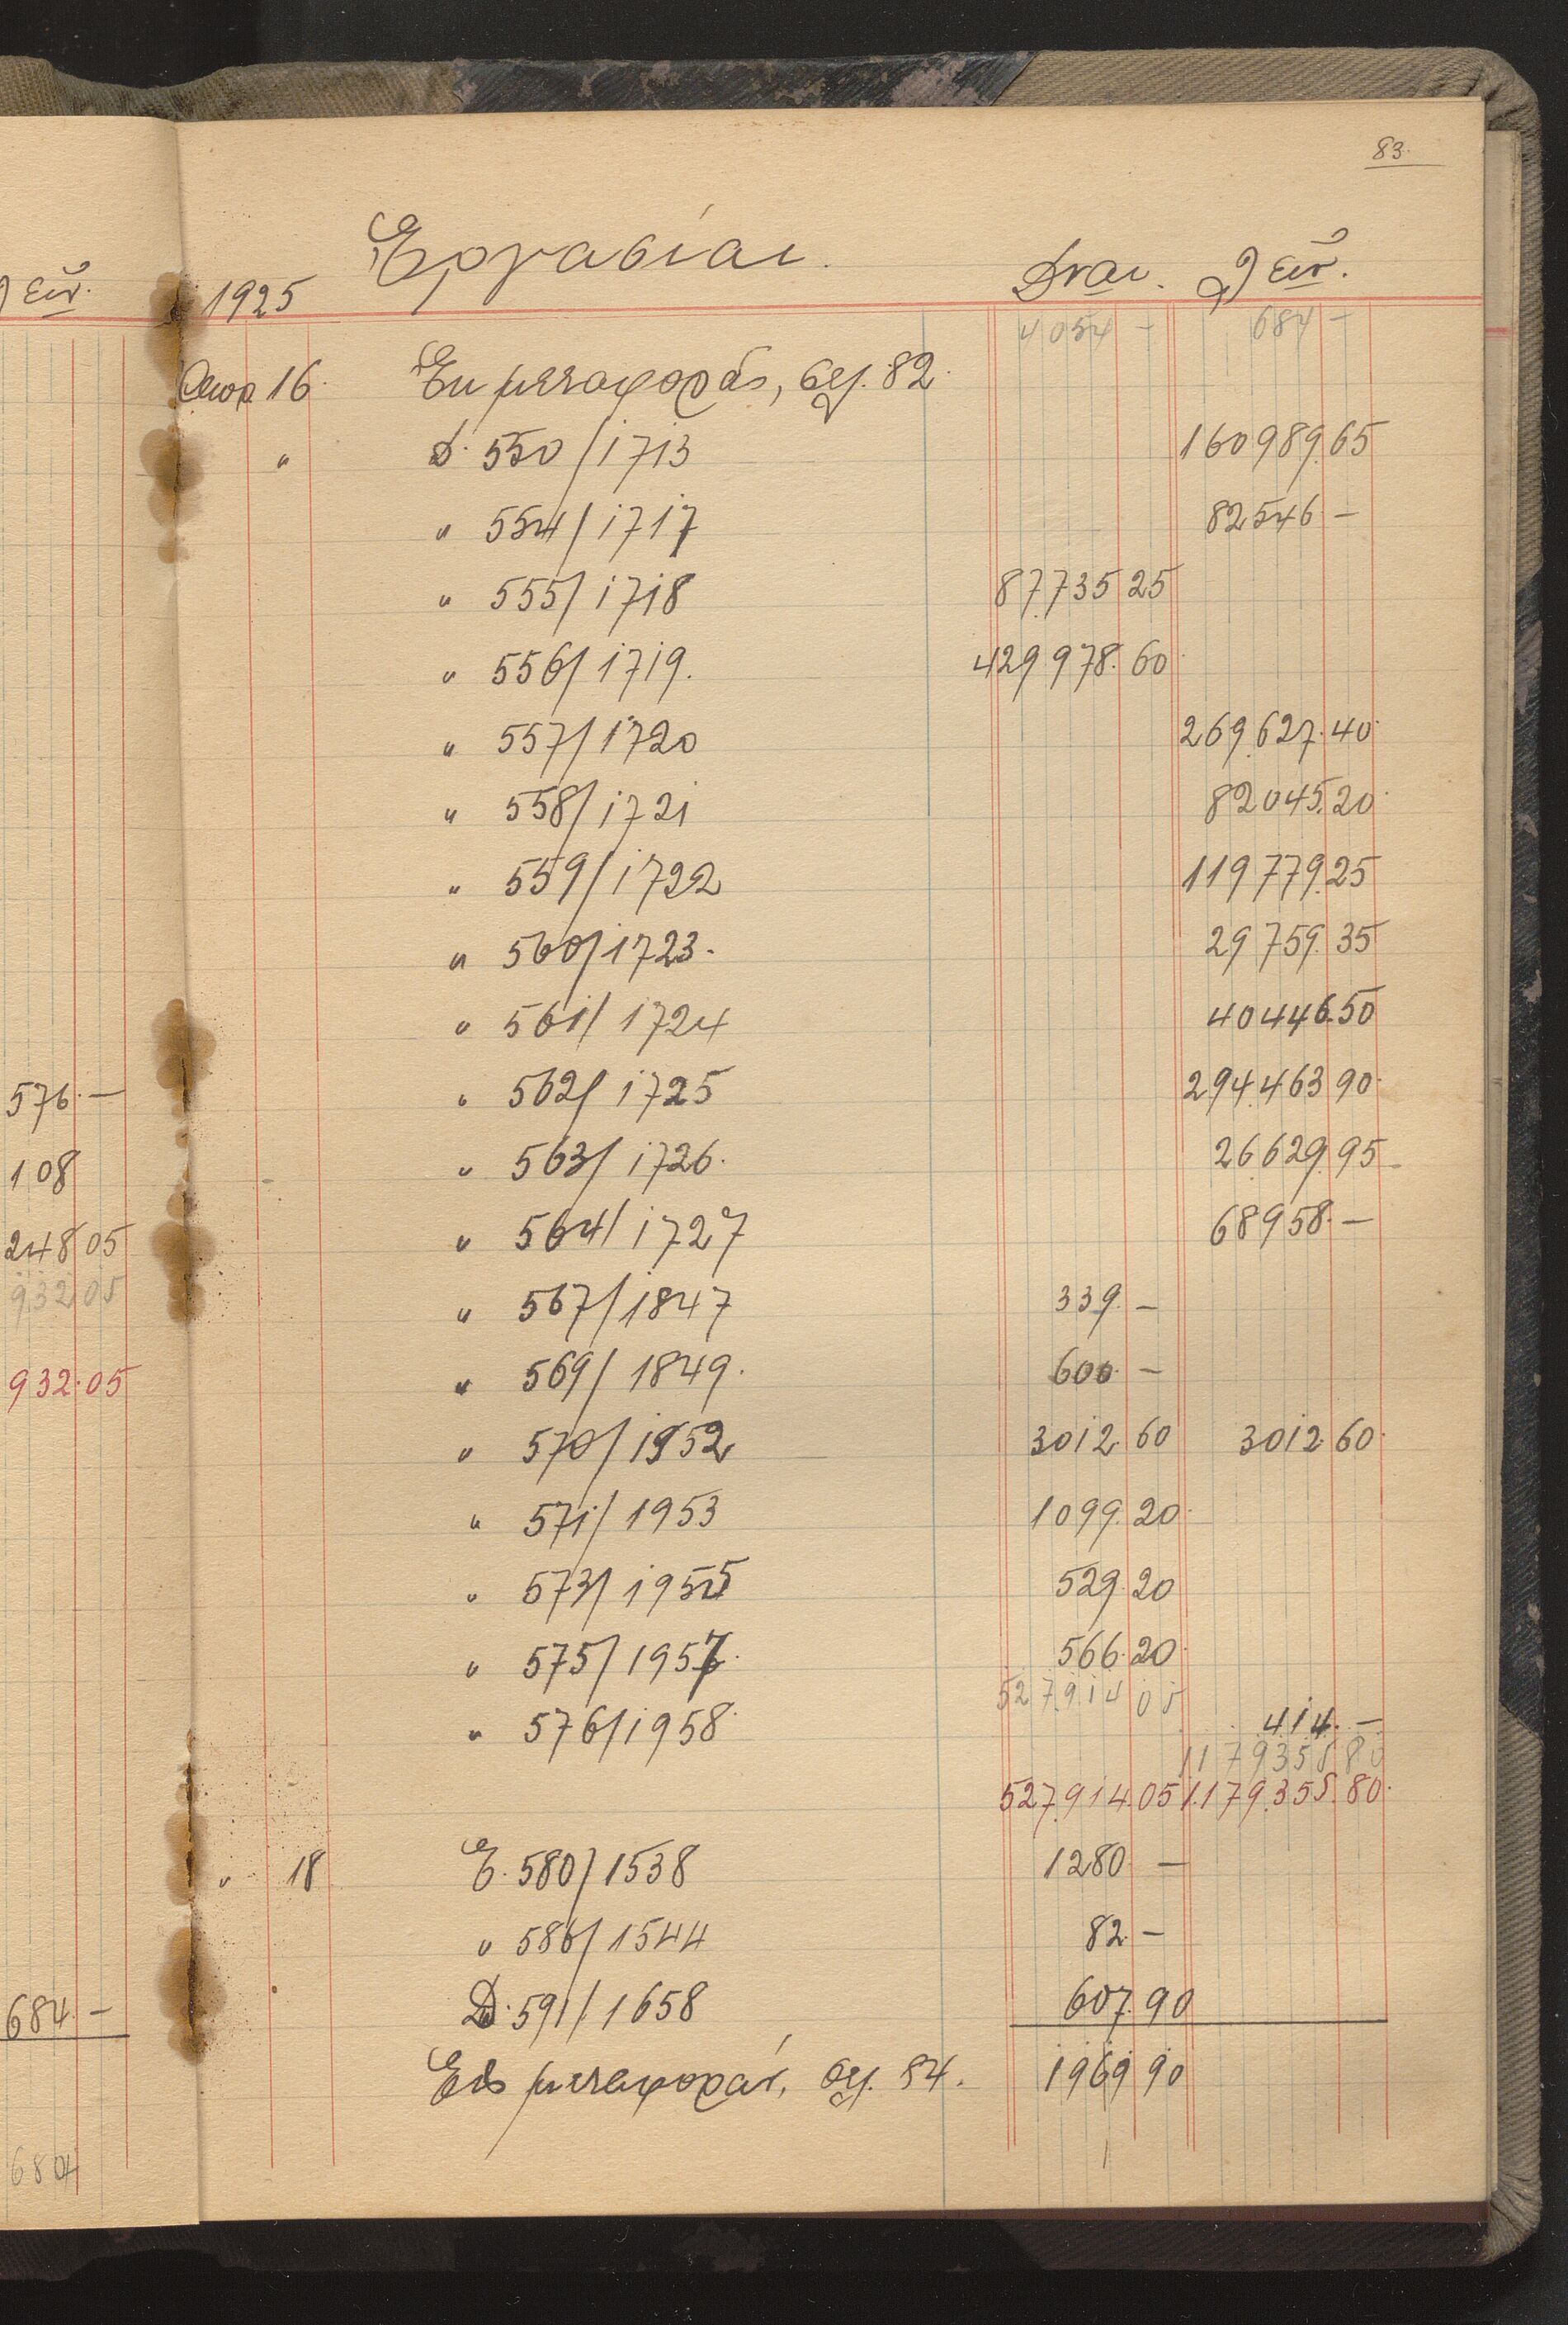 83.
Ἐργασίαι.
1925 Δναι. Λ)εῖν.
4054 — 684 —
16. Ἐκ μεταφορᾶς, σελ. 82.
" Δ. 550/1713 160989.65
" 554/1717 82546 —
" 555/1718 87.735 25
" 556/1719. 429978.60
" 557/1720 269.627.40
" 558/1721 82045.20
" 559/1722 119779.25
" 560/1723. 29759.35
" 561/1724 40446.50
" 562/1725 294.463 90
" 563/1726. 26629.95
" 564/1727 68958.—
" 567/1847 339.—
" 569/1849. 600.—
" 570/1952 3012.60 3012.60
" 571/1953 1099.20
" 573/1955 529.20
" 575/1957. 566.20
527.914 05
" 576/1958 414.—
1179355 80
527.914.05 1.179.355.80
" 18 Ε. 580/1538 1280 —
" 586/1544 82.—
Δ. 591/1658 607.90
Εἰς μεταφοράν, σελ. 84. 1969 90
εῖν.
576.—
108
248 05
932 05
932.05
684.—
684